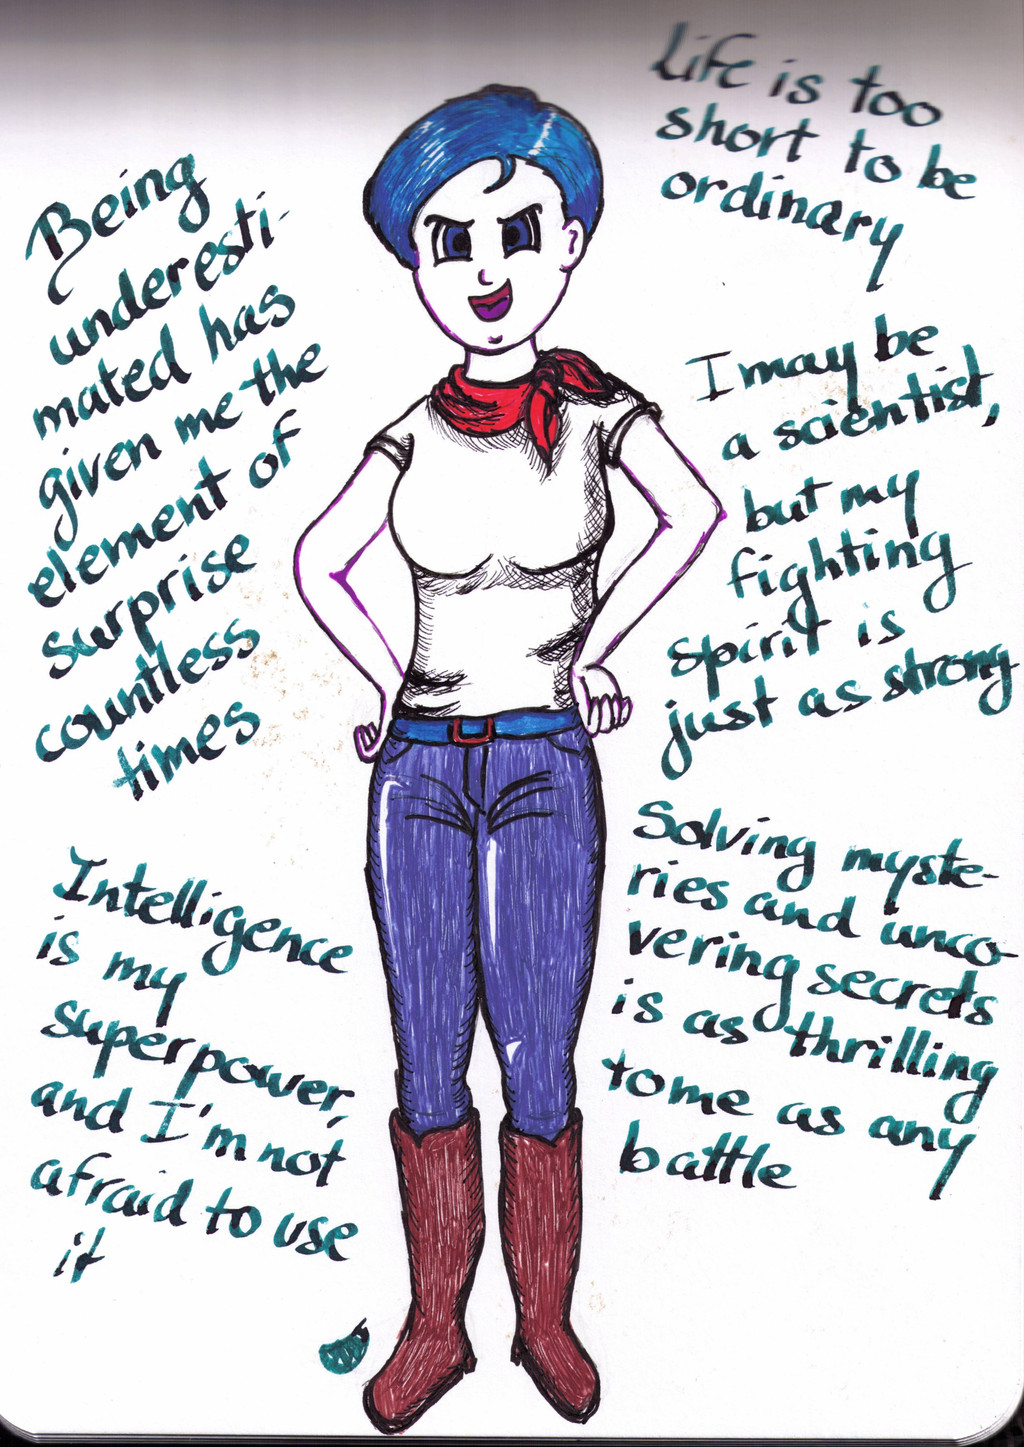 Life is too
short to be
ordinary
Being
underesti-
mated has
given me the
element of
surprise
countless
times
I may be
a scientist,
but my
fighting
spirit is
just as strong
Intelligence
is my
superpower,
and I'm not
afraid to use
it
Solving myste-
ries and unco-
vering secrets
is as thrilling
to me as any
battle